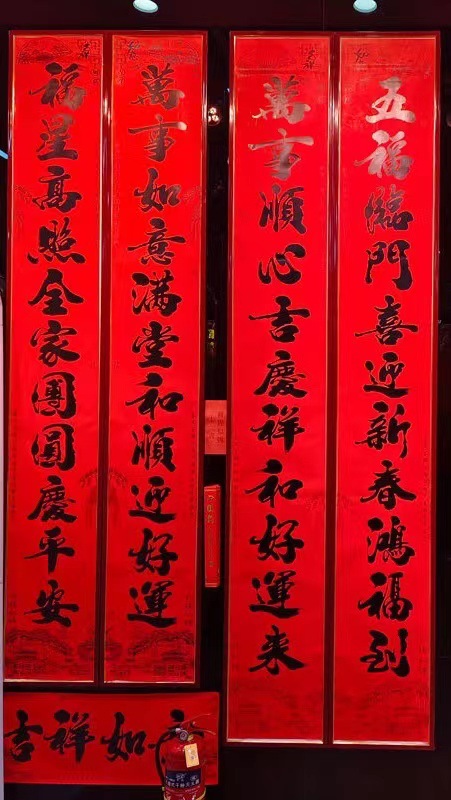 五福臨門喜迎新春鴻福到
萬事順心吉慶祥和好運来
萬事如意满堂和順迎好運
福星高照全家團圓慶平安
吉祥如